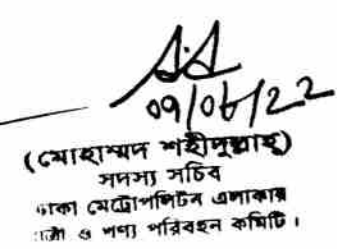 ০৭/০৮/২২
(মোহাম্মদ শহীদুল্লাহ)
সদস্য সচিব
ঢাকা মেট্রোপলিটন এলাকার
ও পণ্য পরিবহন কমিটি।